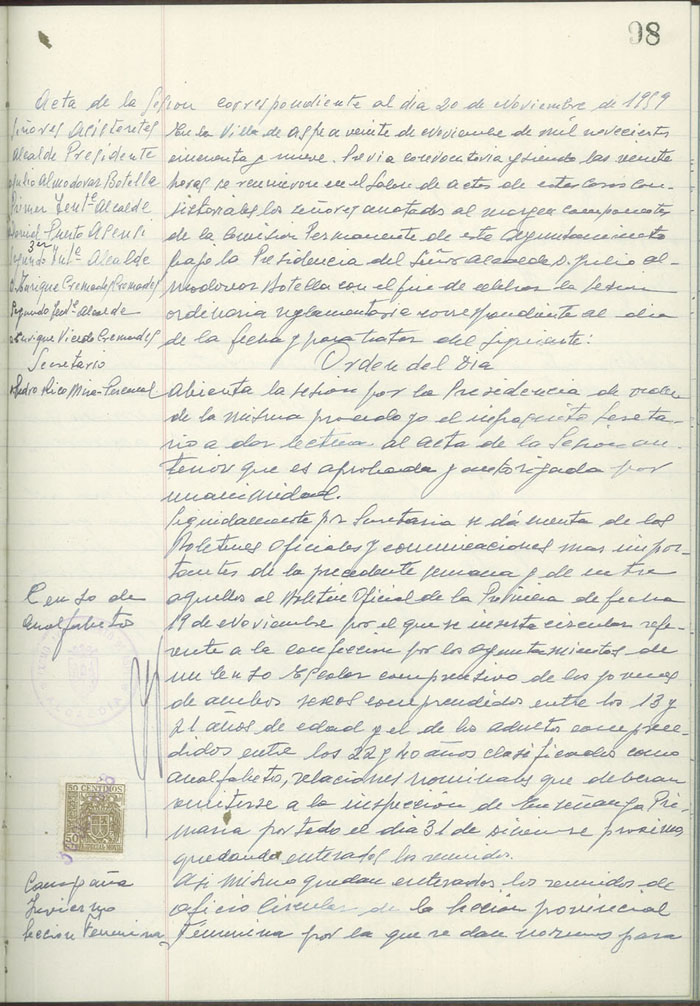 98
Acta de la Sesion correspondiente al dia 20 de Noviembre de 1959
Señores Asistentes
Alcalde Presidente
Julio Almodovar Botella
Primer Tente Alcalde
Daniel Asensi
3er
Tnte Alcalde
Enrique Cremades Cremades
Segundo Tente Alcalde
Enrique Vicedo Cremades
Secretario
Pedro Rico
En la Villa de Aspe a veinte de Noviembre de mil novecientos
cincuenta y nueve. Previa convocatoria y siendo las veinte
horas se reunieron en el Salon de actos de estas Casas Con-
sistoriales los señores anotados al margen componentes
de la Comision Permanente de este Ayuntamiento
bajo la Presidencia del Señor Alcalde D. Julio Al-
modovar Botella con el fin de celebrar la Sesion
ordinaria reglamentaria correspondiente al dia
de la fecha y para tratar del siguiente:
Orden del Dia
Abierta la sesion por la Presidencia de orden
de la misma procedo yo el infrascrito Secreta-
rio a dar lectura al acta de la Sesion an-
terior que es aprobada y autorizada por
unanimidad.
Seguidamente por Secretaria se dá cuenta de los
Boletines Oficiales y comunicaciones mas impor-
tantes de la precedente semana y de entre
aquellos al Boletin Oficial de la Provincia de fecha
19 de Noviembre por el que se inserta circular refe-
rente a la confeccion por los ayuntamientos de
un Censo Escolar comprensivo de los jovenes
de ambos sexos comprendidos entre los 13 y
21 años de edad y el de los adultos compren-
didos entre los 22 y 40 años clasificados como
analfabetos, relaciones nominales que deberan
remitirse a la inspeccion de Enseñanza Pri-
maria por todo el dia 31 de Diciembre proximo
quedando enterados los reunidos.
Censo de
Analfabetos
50 CENTIMOS
50
Campaña
Invierno
Seccion Femenina
Asi mismo quedan enterados los reunidos de
oficio Circular de la Seccion provincial
Femenina por la que se dan normas para